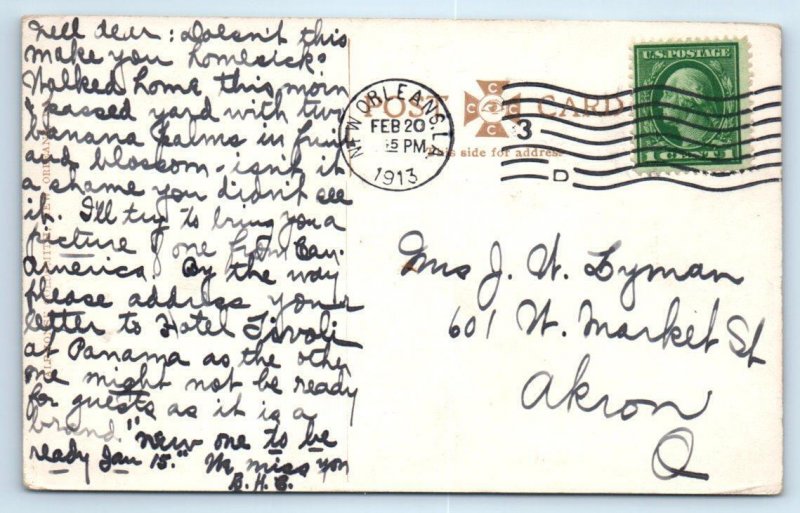 Well dear: Doesn't this
make you homesick?
Walked home this morn
& passed yard with two
banana palms in fruit
and blossom - isn't it
a shame you didn't see
it. I'll try to bring you a
picture of one from Cen.
America. By the way
please address your
letter to Hotel Tivoli
at Panama as the other
one might not be ready
for guests as it is a
brand "new one to be
ready Jan 15." We miss you
B.H.C.
POST CARD
This side for address
NEW ORLEANS, LA
FEB 20
5 PM
1913
3
D
U.S. POSTAGE
1 CENT 1
Mrs J. W. Lyman
601 W. Market St
Akron
O